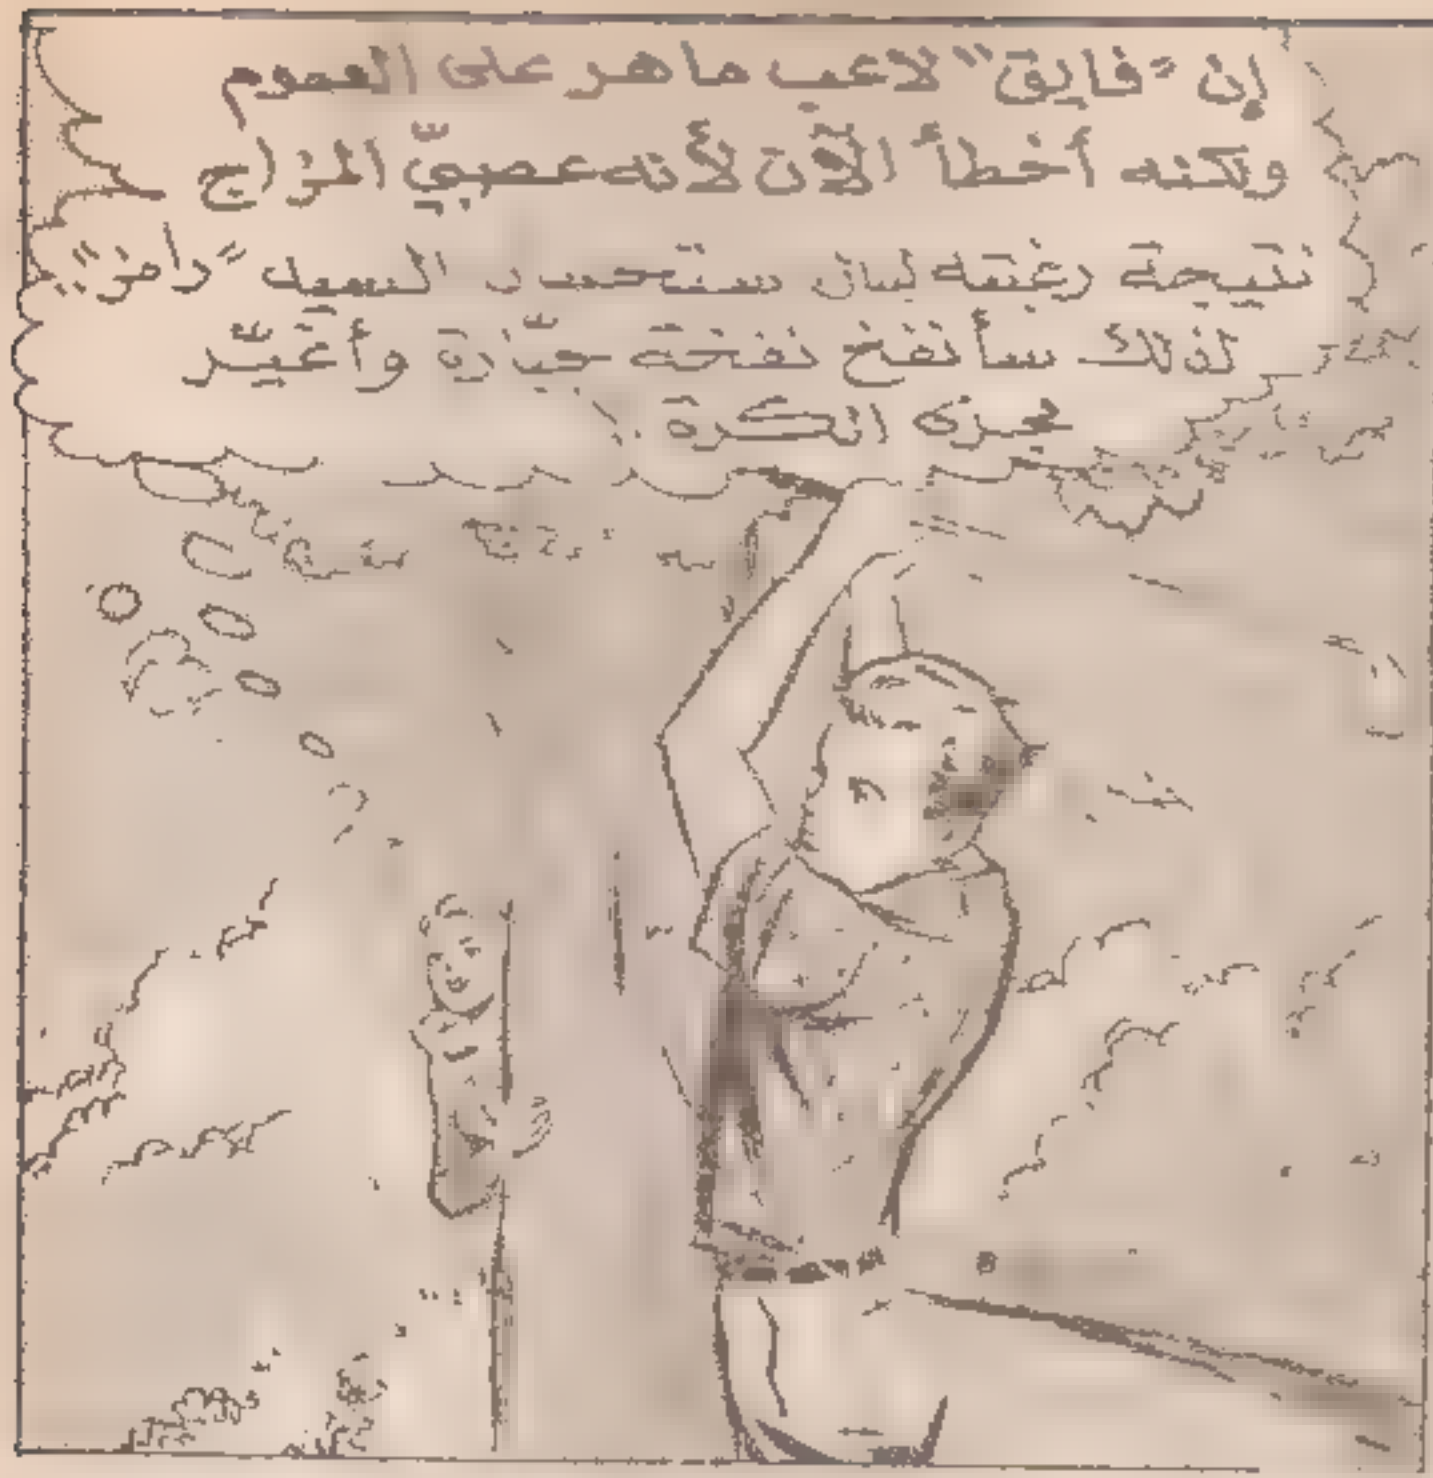 إن "فايق" لاعب ماهر على العموم
ولكنه أخطأ الآن لأنه عصبيّ المزاج
نتيجة رغبته بأن يستحسنه السيد "رامز"
لذلك سأنفخ نفخة جبّارة وأغيّر
مجرى الكرة